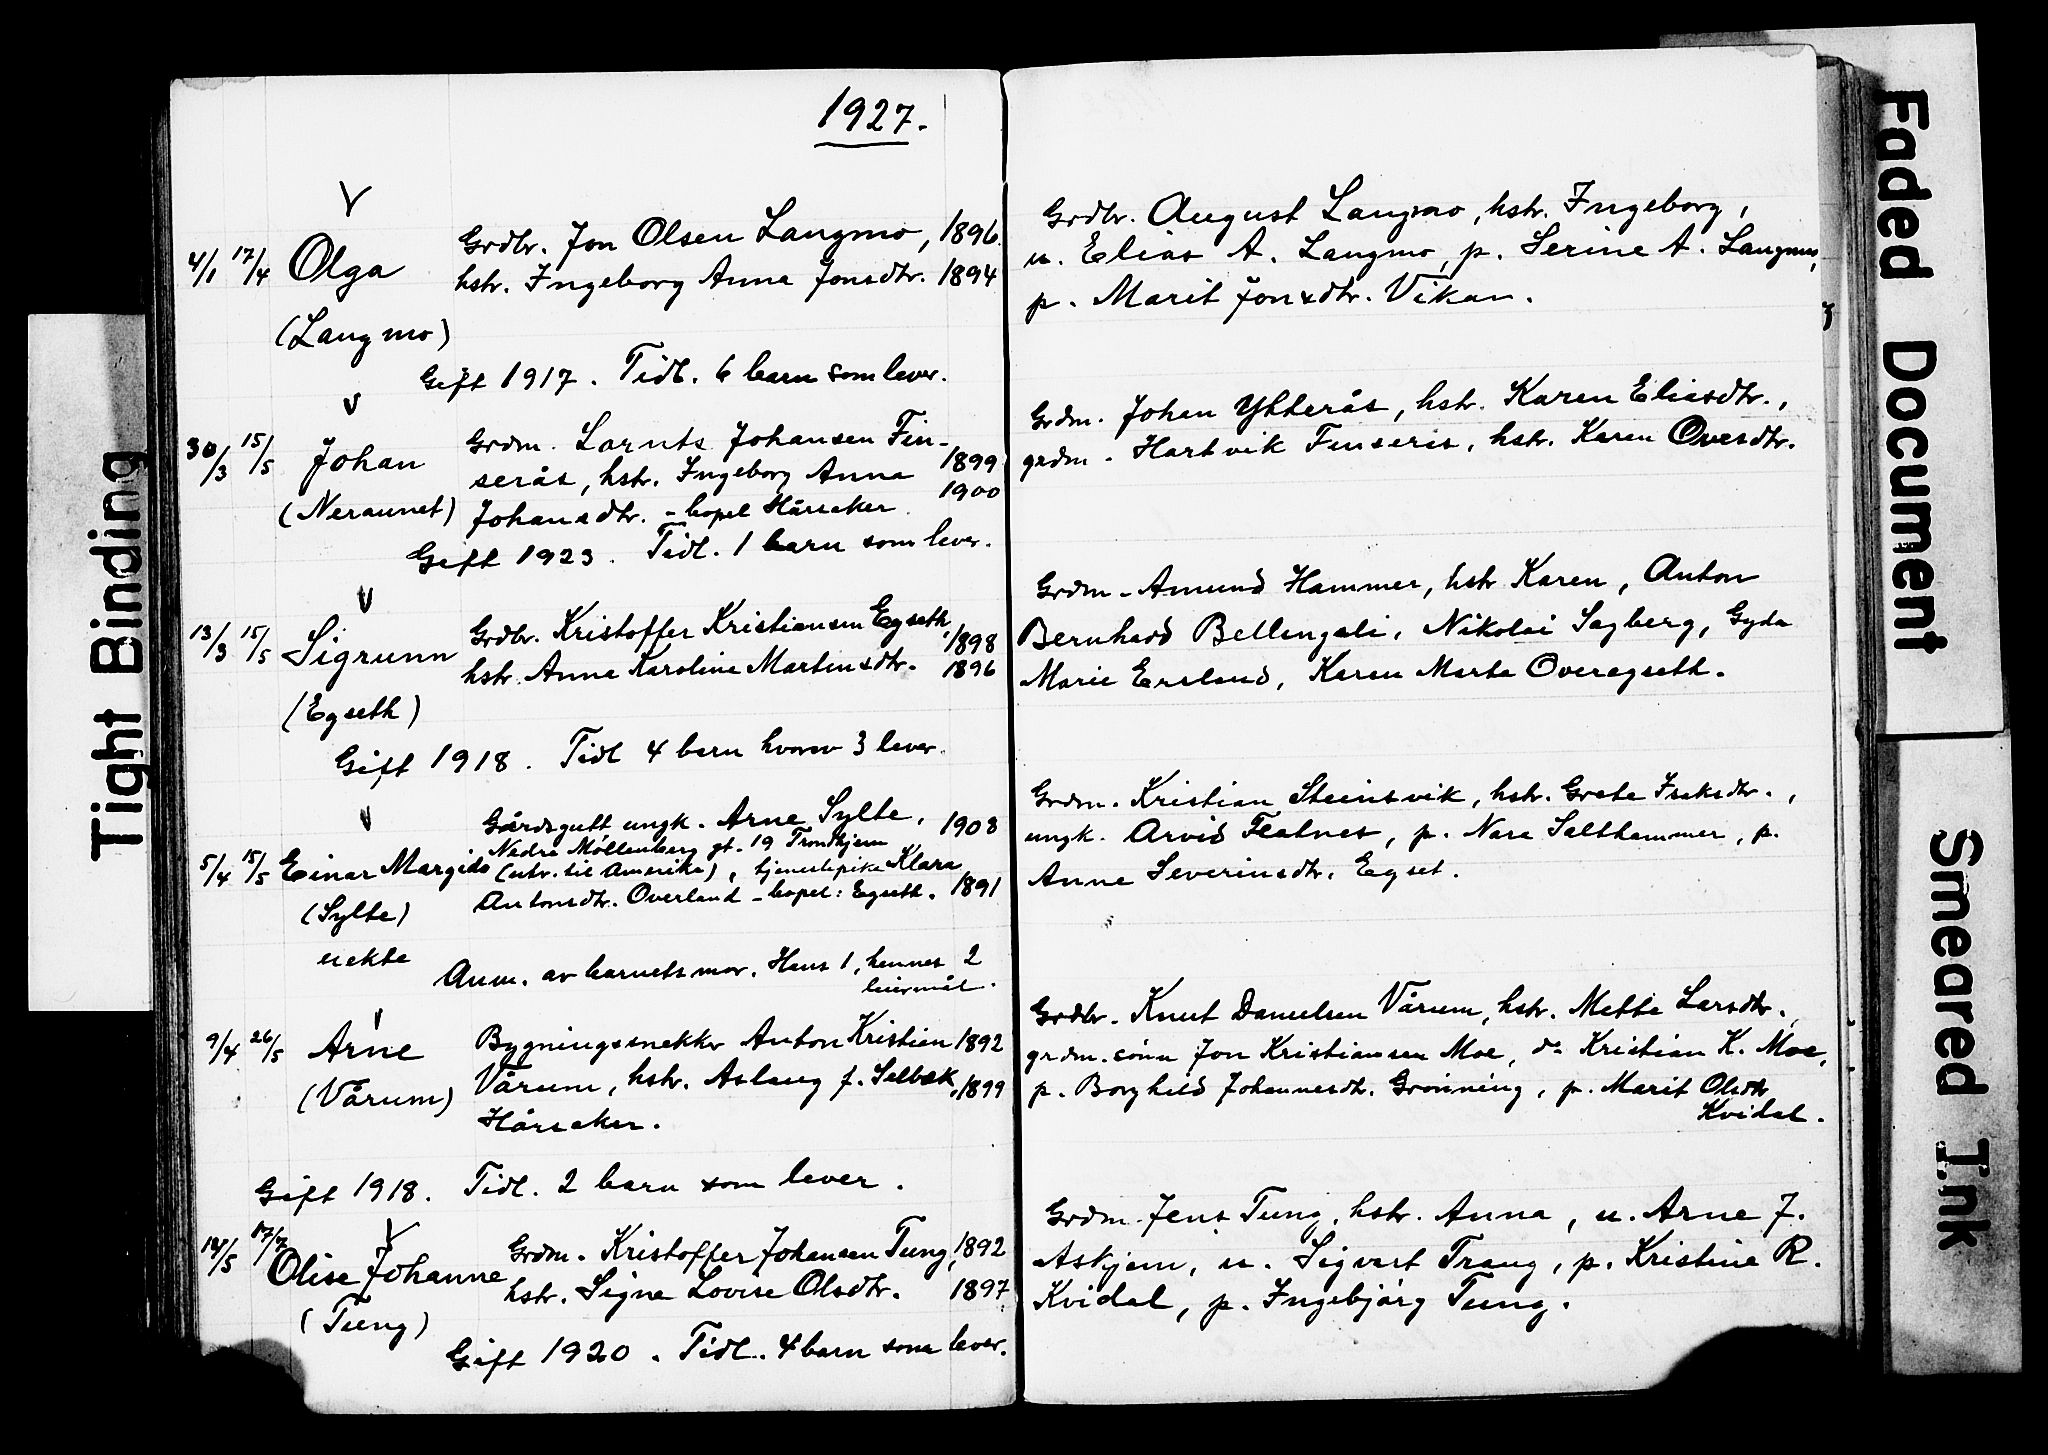 1927.
V
4/1 17/4 Olga Grdbr. Jon Olsen Langmo, 1896.
hstr. Ingeborg Anna Jonsdtr. 1894
(Langmo)
Gift 1917. Tidl. 6 barn som lever.
V
30/3 15/5 Johan Grdm. Larnts Johansen Fin-
serås, hstr. Ingeborg Anna 1899
(Neraunet) Johansdtr. - bopel Hårsaker. 1900
Gift 1923. Tidl. 1 barn som lever.
V
13/3 15/5 Sigrunn Grdbr. Kristoffer Kristiansen Egseth, 1898
hstr. Anne Karoline Martinsdtr. 1896
(Egseth)
Gift 1918. Tidl 4 barn hvorav 3 lever.
V
Gårdsgutt ungk. Arne Sylte, 1908
Nedre Møllenberg gt. 19 Trondhjem
5/4 15/5 Einar Margido (utv. til Amerika), tjenestepike Klara
(Sylte) Antonsdtr. Overland - bopel: Egseth. 1891
uekte
Anm. av barnets mor. Hans 1, hennes 2
leiermål.
V
9/4 26/5 Arne Bygningssnekker Anton Kristian 1892
(Vårum) Vårum, hstr. Aslaug f. Selbæk, 1899
Hårsaker.
Gift 1918. Tidl. 2 barn som lever.
V
14/5 17/7 Olise Johanne Grdm. Kristoffer Johansen Tung, 1892
hstr. Signe Lovise Olsdtr. 1897
(Tung)
Gift 1920. Tidl. 4 barn som lever.
Grdbr. August Langmo, hstr. Ingeborg,
u. Elias A. Langmo, p. Serine A. Langmo,
p. Marit Jonsdtr. Vikan.
Grdm. Johan Ytterås, hstr. Karen Eliasdtr.,
grdm. Hartvik Finserås, hstr. Karen Ovesdtr.
Grdm. Amund Hammer, hstr Karen, Anton
Bernhard Bellingsli, Nikolai Sagberg, Gyda
Marie Ersland, Karen Marta Overegseth.
Grdm. Kristian Steinsvik, hstr. Grete Isaksdtr.,
ungk. Arvid Flatnes, p. Nara Salthammer, p.
Anne Severinsdtr. Egset.
Grdbr. Knut Danielsen Vårum, hstr. Mette Larsdtr.,
grdm.sønn Jon Kristiansen Moe, do Kristian K. Moe,
p. Borghild Johannesdtr. Grønning, p. Marit Olsdtr
Kvidal.
Grdm. Jens Tung, hstr. Anna, u. Arne J.
Askjem, u. Sigvart Trang, p. Kristine R.
Kvidal, p. Ingebjørg Tung.
Tight Binding
Faded Document
Smeared Ink